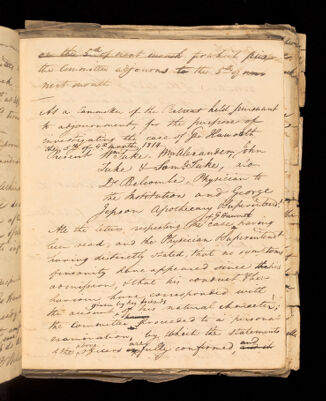 on the 5th of next month for which
the Committee adjourns to the 5th of
next month
At a Committee of the Retreat held pursuant
to adjournment, for the purpose of
investigating the case of Geo Haworth
the 5th of 6th month, 1814
Present Wm Tuke, Wm Alexander, John
Tuke & Saml Tuke, also
Dr Belcombe, Physician to
the Institution and George
Jepson Apothecary & Superintendent
of G Haworth
All the letters respecting the case having
been read, and the Physician & Superintendent
having distinctly stated, that no symptoms
of insanity have appeared since his
admission, & that his conduct &
have corresponded with
given by his friends
the account of his natural character;
the Committee proceeded to a personal
examination, by which the statements
of the above Officers are fully confirmed, and